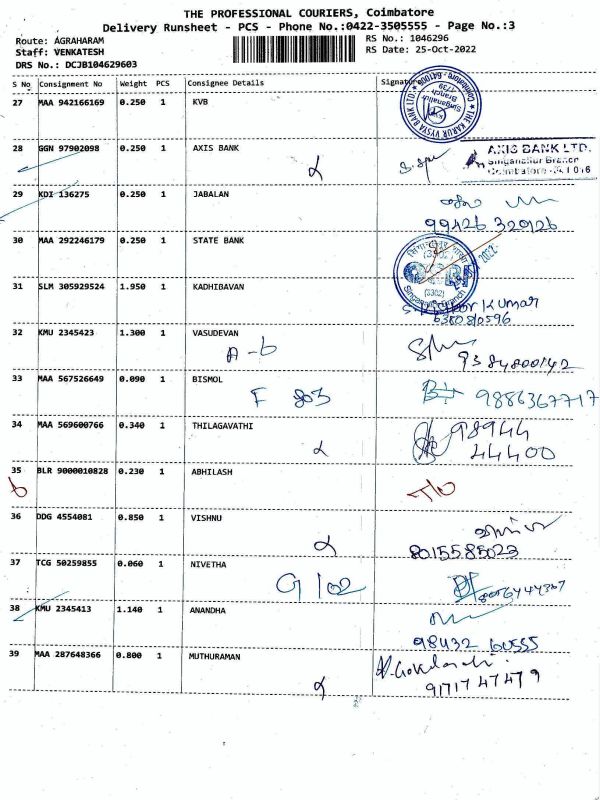 THE PROFESSIONAL COURIERS, Coimbatore
Delivery Runsheet - PCS - Phone No.:0422-3505555 - Page No.:3
Route: AGRAHARAM
RS No.: 1046296
Staff: VENKATESH
RS Date: 25-Oct-2022
DRS No.: DCJB104629603
S No Consignment No Weight PCS Consignee Details Signature
27 MAA 942166169 0.250 1 KVB
THE KARUR VYSYA BANK LTD.
Singanallur
Branch
1739
Coimbatore - 641005
28 GGN 97902098 0.250 1 AXIS BANK
AXIS BANK LTD.
Singanallur Branch
Coimbatore
29 KDI 136275 0.250 1 JABALAN
99426 320126
30 MAA 292246179 0.250 1 STATE BANK
(3302)
31 SLM 305929524 1.950 1 KADHIBAVAN
Kumar
32 KMU 2345423 1.300 1 VASUDEVAN
A-6
9384800142
33 MAA 567526649 0.090 1 BISMOL
F 803
9886367717
34 MAA 569600766 0.340 1 THILAGAVATHI
98944
44400
35 BLR 9000010828 0.230 1 ABHILASH
36 DDG 4554081 0.850 1 VISHNU
8015585023
37 TCG 50259855 0.060 1 NIVETHA
G 102
38 KMU 2345413 1.140 1 ANANDHA
98432 60555
39 MAA 287648366 0.800 1 MUTHURAMAN
9171747479